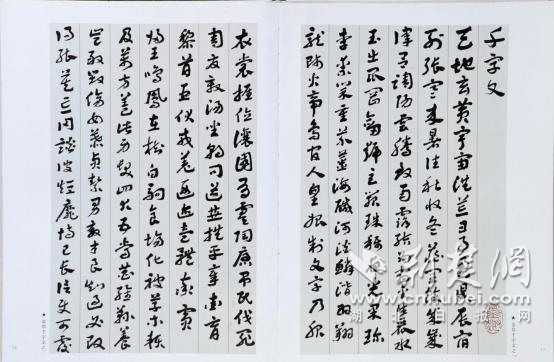 千字文
天地玄黄宇宙洪荒日月盈昃辰宿
列张寒来暑往秋收冬藏闰余成岁
律吕调阳云腾致雨露结为霜金生丽水
玉出昆冈剑号巨阙珠称夜光果珍
李柰菜重芥薑海醎河淡鳞潜羽翔
龙师火帝鸟官人皇始制文字乃服
衣裳推位让国有虞陶唐吊民伐罪
周发殷汤坐朝问道垂拱平章爱育
黎首臣伏戎羌遐迩壹体率宾
归王鸣凤在树白驹食场化被草木赖
及万方盖此身发四大五常恭惟鞠养
岂敢毁伤女慕贞絜男效才良知过必改
得能莫忘罔谈彼短靡恃己长信使可覆
荆楚网
湖北日报网